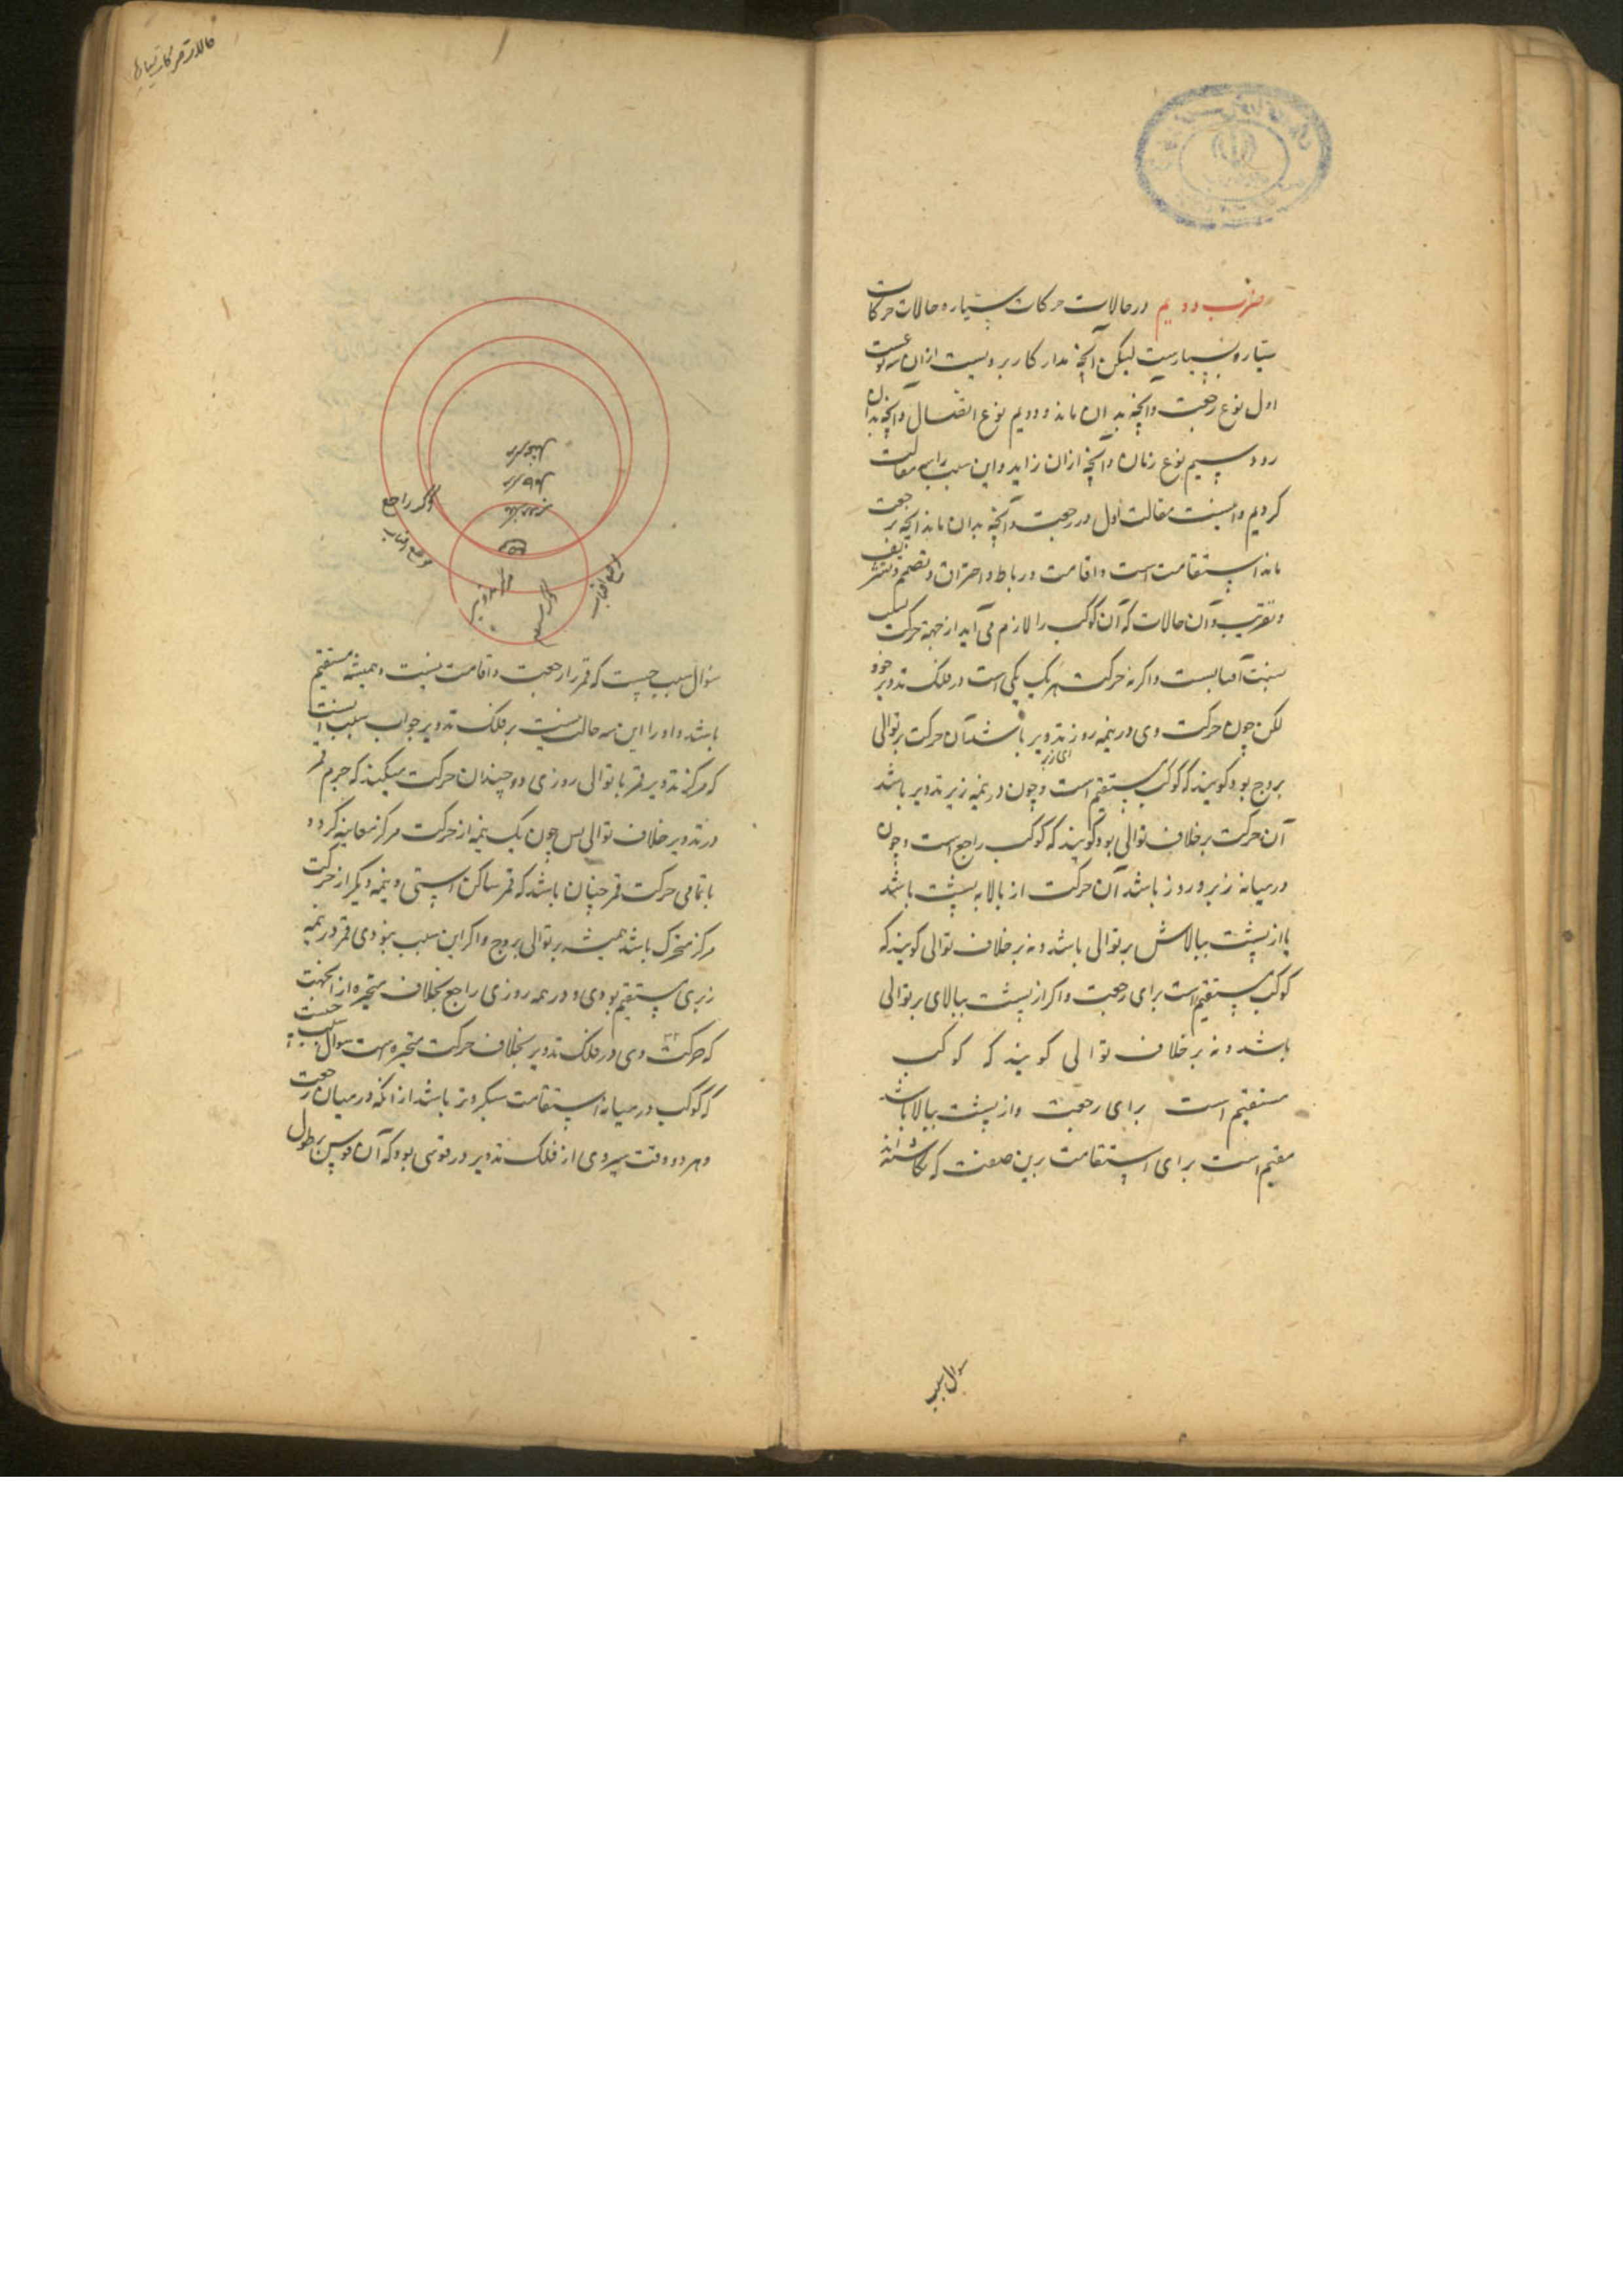 ضرب دویم در حالات حرکات سیاره حالات حرکات
سیاره بسیارست لیکن آنچه مدار کار برویست ازان سه نوعست
اول نوع رجعت وانچه بدان ماند و دویم نوع اتصال وانچه بدان
رود سیم نوع زمان وآنچه ازان زاید واین سبب را سه مقالت
کردیم واینست مقالت اول در رجعت وآنچه بدان ماند آنچه بر رجعت
ماند استقامت است واقامت ورباط واحتراق وتصمیم وتشریف
وتغریب وآن حالات که آن کوکب را لازم می آید از جهة حرکت
نسبت آفتابست واکرنه حرکت هر یک یکی است در فلک تدویر خود
لکن چون حرکت وی در نیمه روز تدویر باشد آن حرکت بر توالی
ای زبر
بروج بود کویند که کوکب مستقیم است وچون در نیمه زیر تدویر باشد
آن حرکت بر خلاف توالی بود کویند که کوکب راجع است وچون
در میانه زیر وروز باشد آن حرکت از بالا به پشت باشد
یا از پشت ببالاش بر توالی باشد ونه بر خلاف توالی کویند که
کوکب مستقیم است برای رجعت واکر از پشت ببالای بر توالی
باشد ونه بر خلاف توالی کویند که کوکب
مستقیم است برای رجعت واز پشت ببالا باشد
مقیم است برای استقامت برین صفت که نکاشته اند
سوال سبب
حالات حرکات سیاره
مرکز تدویر
کوکب راجع
موضع آفتاب
موضع آفتاب
سوال سبب چیست که قمر را رجعت واقامت نیست وهمیشه مستقیم
باشد واو را این سه حالت نیست بر فلک تدویر جواب سبب آنست
که مرکز تدویر قمر با توالی روزی دو چندان حرکت میکند که جرم قمر
در تدویر خلاف توالی پس چون یک نیمه از حرکت مرکز معاینه کردد
با تمامی حرکت قمر چنان باشد که قمر ساکن استی ونیمه دیکر از حرکت
مرکز متحرک باشد همیشه بر توالی بروج واکر این سبب نبودی قمر در نیمه
زبری مستقیم بودی ودر نیمه روزی راجع بخلاف متحیره از آنجهت
که حرکت وی در فلک تدویر بخلاف حرکت متحیره است سوال سبب چیست
که کوکب در میانه استقامت سبکروتر باشد از آنکه در میان رجعت
وهر دو وقت سیروی از فلک تدویر در قوسی بود که آن قوس بر طول